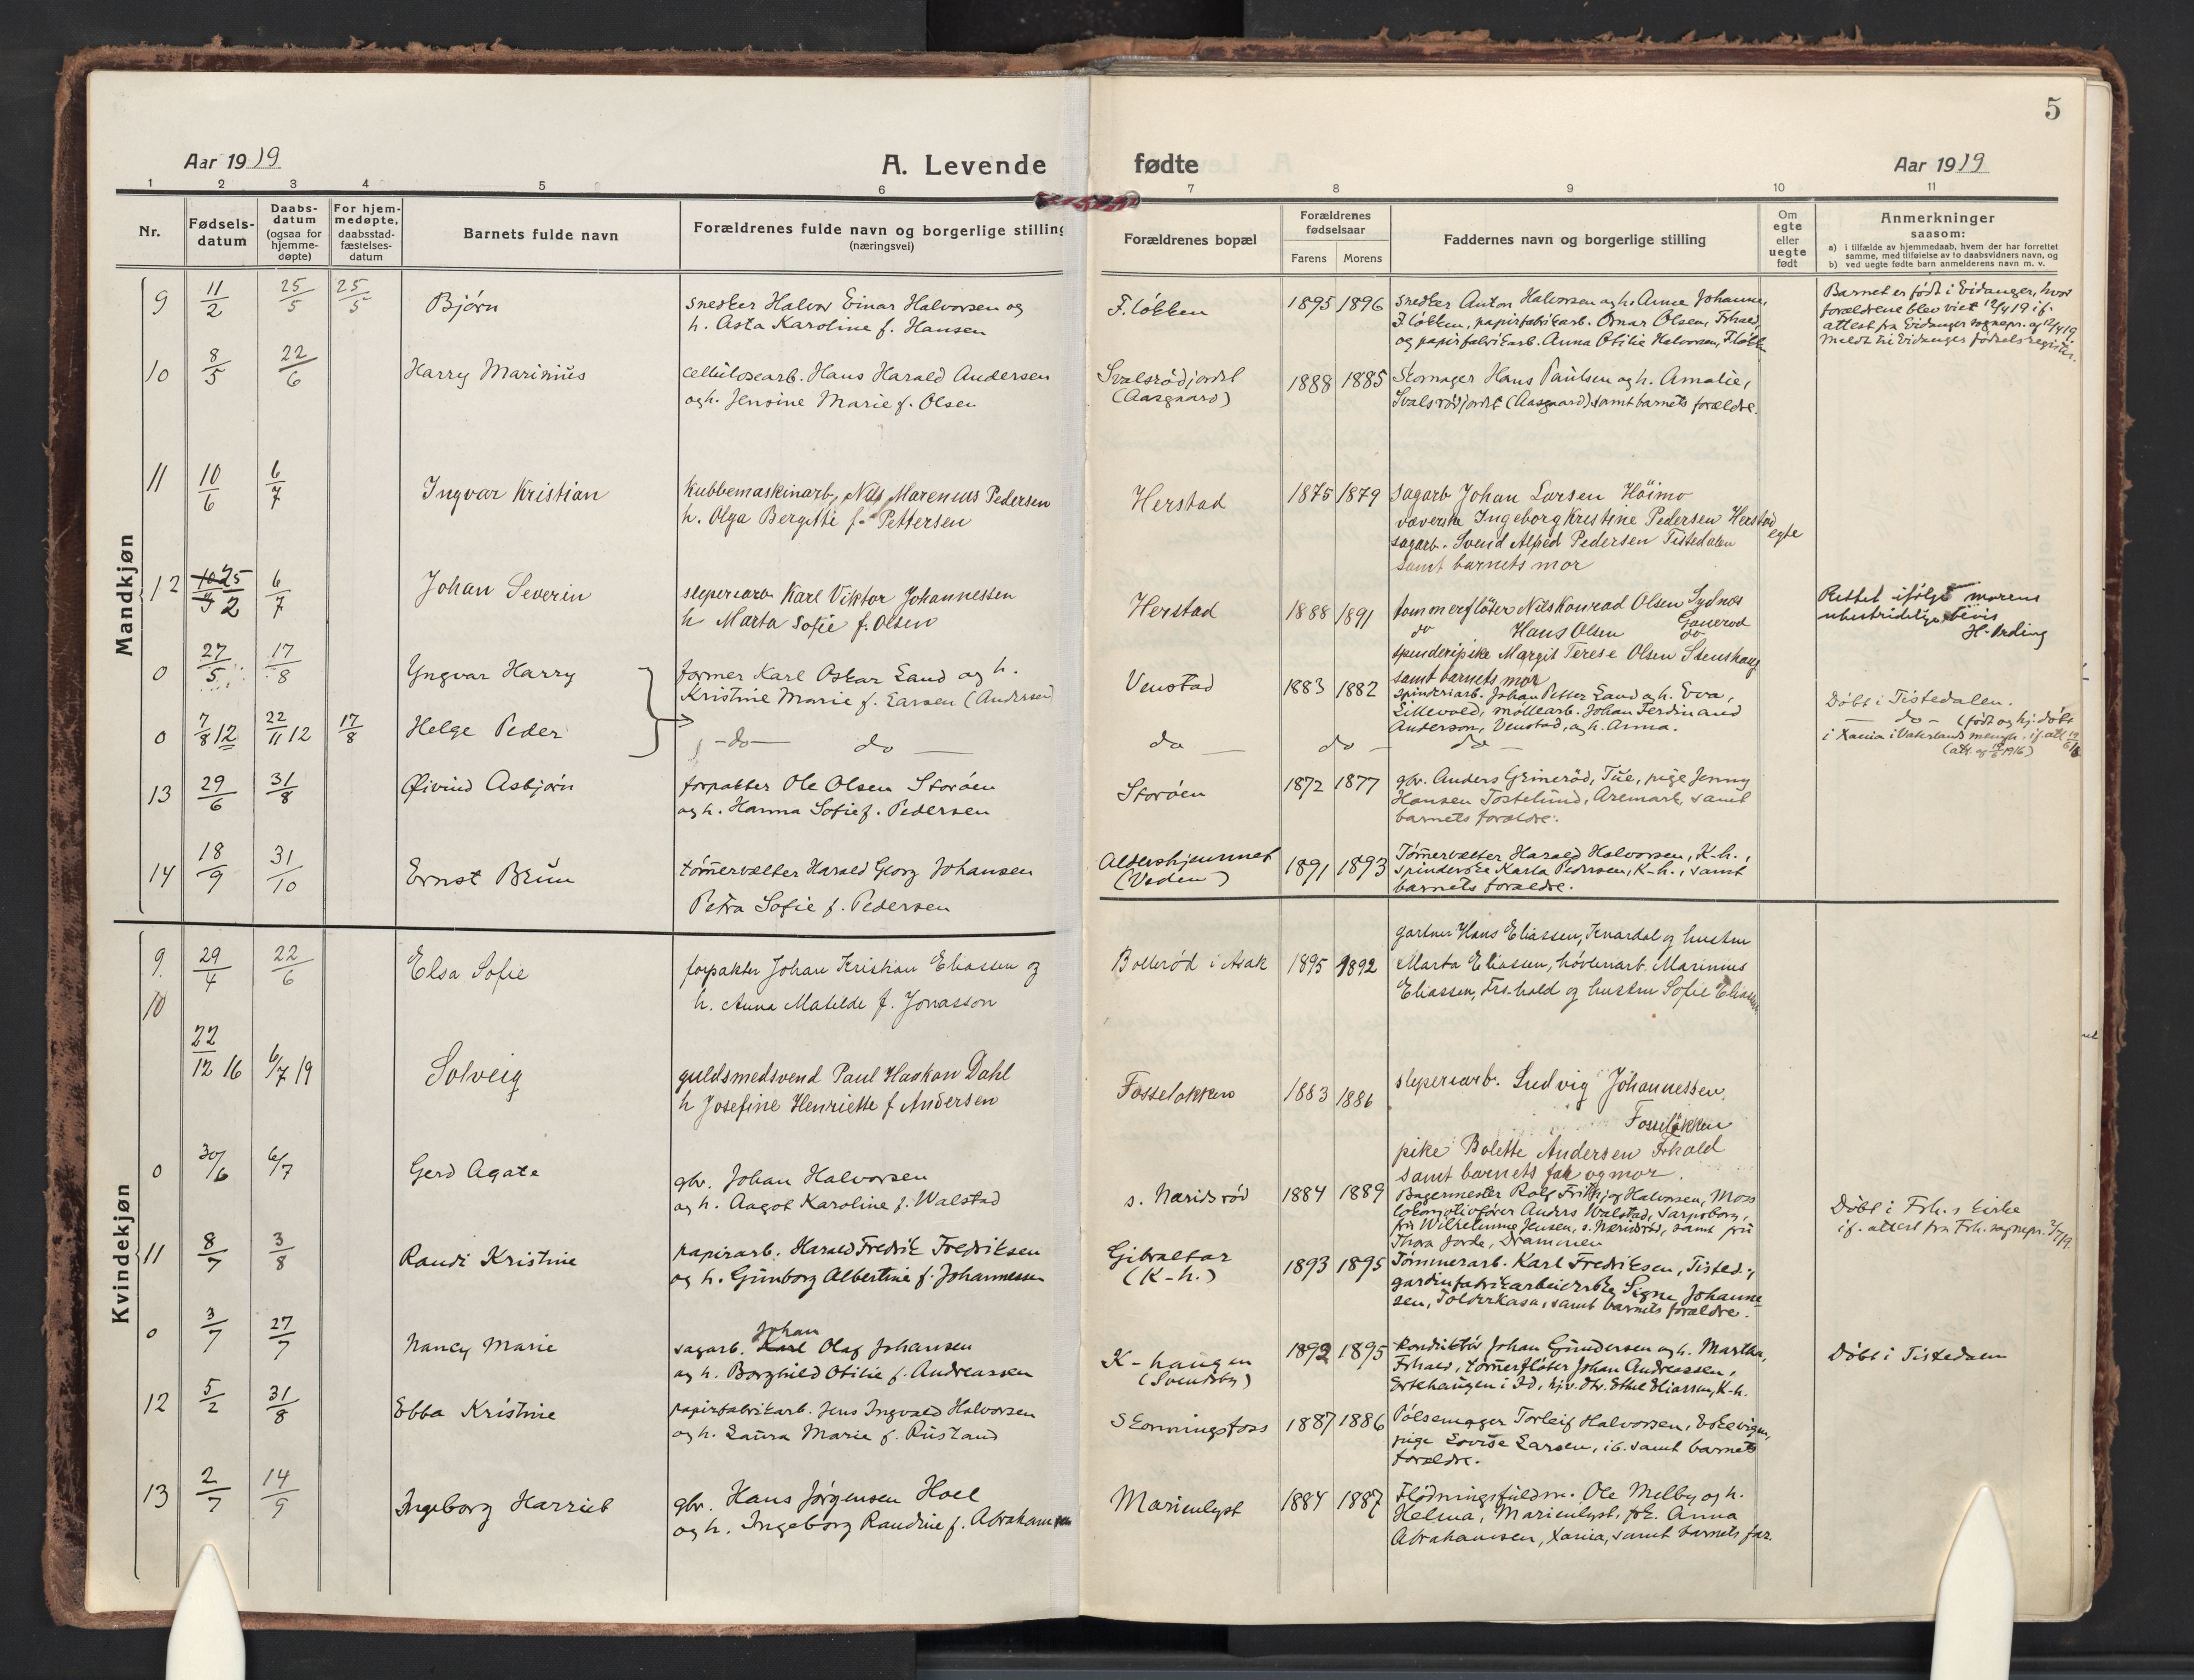 5
Aar 1919
A. Levende fødte
Aar 1919
1 2 3 4 5 6 7 8 9 10 11
Nr.
Fødsels-
datum
Daabs-
datum
(ogsaa for
hjemme-
døpte)
For hjem-
medøpte,
daabsstad-
fæstelses-
datum
Barnets fulde navn
Forældrenes fulde navn og borgerlige stilling
(næringsvei)
Forældrenes bopæl
Forældrenes
fødselsaar
Farens Morens
Faddernes navn og borgerlige stilling
Om
egte
eller
uegte
født
Anmerkninger
saasom:
a) i tilfælde av hjemmedaab, hvem der har forrettet
samme, med tilføielse av to daabsvidners navn, og
b) ved uegte fødte barn anmelderens navn m. v.
Mandkjøn
9 11/2 25/5 25/5 Bjørn
snedker Halvor Einar Halvorsen og
h. Asta Karoline f. Hansen
Fløkken 1895 1896
snedker Anton Halvorsen og h. Anna Johanne,
Fløkken, papirfabrikarb. Ornar Olsen, Frhald,
og papirfabrikarb. Anna Otilie Halvorsen, Fløkk
Barnet er født i Eidanger, hvor
forældrene blev viet 12/4 19 if.
attest fra Eidanger sognepr. og 12/4 19.
meldt til Eidanger fødselsregister.
10 8/5 22/6 Harry Marinius
cellulosearb. Hans Harald Andersen
og h. Jensine Marie f. Olsen
Svalsrødjordet
(Aasgaard)
1888 1885
Skomager Hans Paulsen og h. Amalie,
Svalsrødjordet (Aasgaard) samt barnets forældre.
11 10/6 6/7 Ingvar Kristian
Kubbemaskinarb, Nils Marenius Pedersen
h. Olga Bergitte f. Pettersen
Herstad 1875 1879
sagarb Johan Larsen Höimo
væverske Ingeborg Kristine Pedersen Herstad
sagarb. Svend Alfred Pedersen Tistedalen
samt barnets mor
egte
12 25/2 6/7 Johan Severin
sleperiarb Karl Viktor Johannessen
h Marta Sofie f. Olsen
Herstad 1888 1891
tømmerfløter Nils Konrad Olsen Sydnes
do Hans Olsen do
spinderipike Margit Terese Olsen Stenshaug
samt barnets mor
Rettet ifölge morens
ubestridelige bevis
H. Arding
0 27/5 17/8 Yngvar Harry
former Karl Oskar Lund og h.
Kristine Marie f. Larsen (Andersen)
Venstad 1883 1882
Spinderiarb. Johan Petter Lund og h. Eva,
Lillevold, møllearb. Johan Ferdinand
Andersen, Venstad, og h. Anna.
Døbt i Tistedalen.
0 7/8 12 22/11 12 17/8 Helge Peder
do do
do do do
do (født og hj. døbt
i Xania i Vaterlands mengh. if. att.
13 29/6 31/8 Øivind Asbjørn
forpakter Ole Olsen Storøen
og h. Hanna Sofie f. Pedersen
Storøen 1872 1877
gbr. Anders Grinerød, Tue, pige Jenny
Hansen Tostelund, Aremark, samt
barnets forældre.
14 18/9 31/10 Ernst Brun
tømervælter Harald Georg Johansen
Petra Sofie f. Pedersen
Aldershjemmet
(Veden)
1891 1893
Tømervælter Harald Halvorsen, K-h.,
spinderske Karla Pedersen, K-h., samt
barnets forældre.
Kvindekjøn
9 29/4 22/6 Elsa Sofie
forpakter Johan Kristian Eliassen og
h. Anna Matilde f. Jonasson
Bollerød i Asak 1895 1892
gartner Hans Eliassen, Knardal og hustru
Marta Eliassen, høvleriarb. Marinius
Eliassen, Frs-hald og hustru Sofie Eliassen
10 22/12 16 6/7 19 Solveig
guldsmedsvend Paul Haakon Dahl
h Josefine Henriette f Andersen
Fosseløkken 1883 1886
sleperiarb. Ludvig Johannessen,
Fosseløkken
pike Bolette Andersen Frhald
samt barnets far og mor.
0 30/6 6/7 Gerd Agate
gbr. Johan Halvorsen
og h. Aagot Karoline f. Walstad
s. Næridsrød 1884 1889
Bagermester Rolf Fritjog Halvorsen, Moss
lokomotivfører Anders Walstad, Sarpsborg,
fru Wilhelmine Jensen, s. Næridsrød, samt fru
Thora Jorde, Drammen
Døbt i Frh.s kirke
if. attest fra Frh. sognepr. 2/7 19.
11 8/7 3/8 Randi Kristine
papirarb. Harald Fredrik Fredriksen
og h. Gunborg Albertine f. Johannessen
Gibraltar
(K-h.)
1893 1895
Tømmerarb. Karl Fredriksen, Tisted.,
gardinfabrikarbeiderske Signe Johanne
sen, Tolderkasa, samt barnets forældre.
0 3/7 27/7 Nancy Marie
Johan
sagarb. Karl Olaf Johansen
og h. Borghild Otilie f. Andreassen
K-haugen
(Svendsby)
1892 1895
Konduktør Johan Gundersen og h. Martha,
Frhald, tømerfløter Johan Andreassen,
Ertehaugen i Id, hjv. dtr. Ethel Eliassen, K-h.
Døbt i Tistedalen
12 5/2 31/8 Ebba Kristine
papirfabrikarb. Jens Ingvald Halvorsen
og h. Laura Marie f. Rustand
Skonningsfoss 1887 1886
Pølsemager Torleif Halvorsen,
pige Lovise Larsen, ib. samt barnets
forældre.
13 2/7 14/9 Ingeborg Harriet
gbr. Hans Jørgensen Hoel
og h. Ingeborg Randine f. Abrahamsen
Marienlyst 1884 1887
Flødningsfuldm. Ole Melby og h.
Helma, Marienlyst, frk. Anna
Abrahamsen, Xania, samt barnets far.